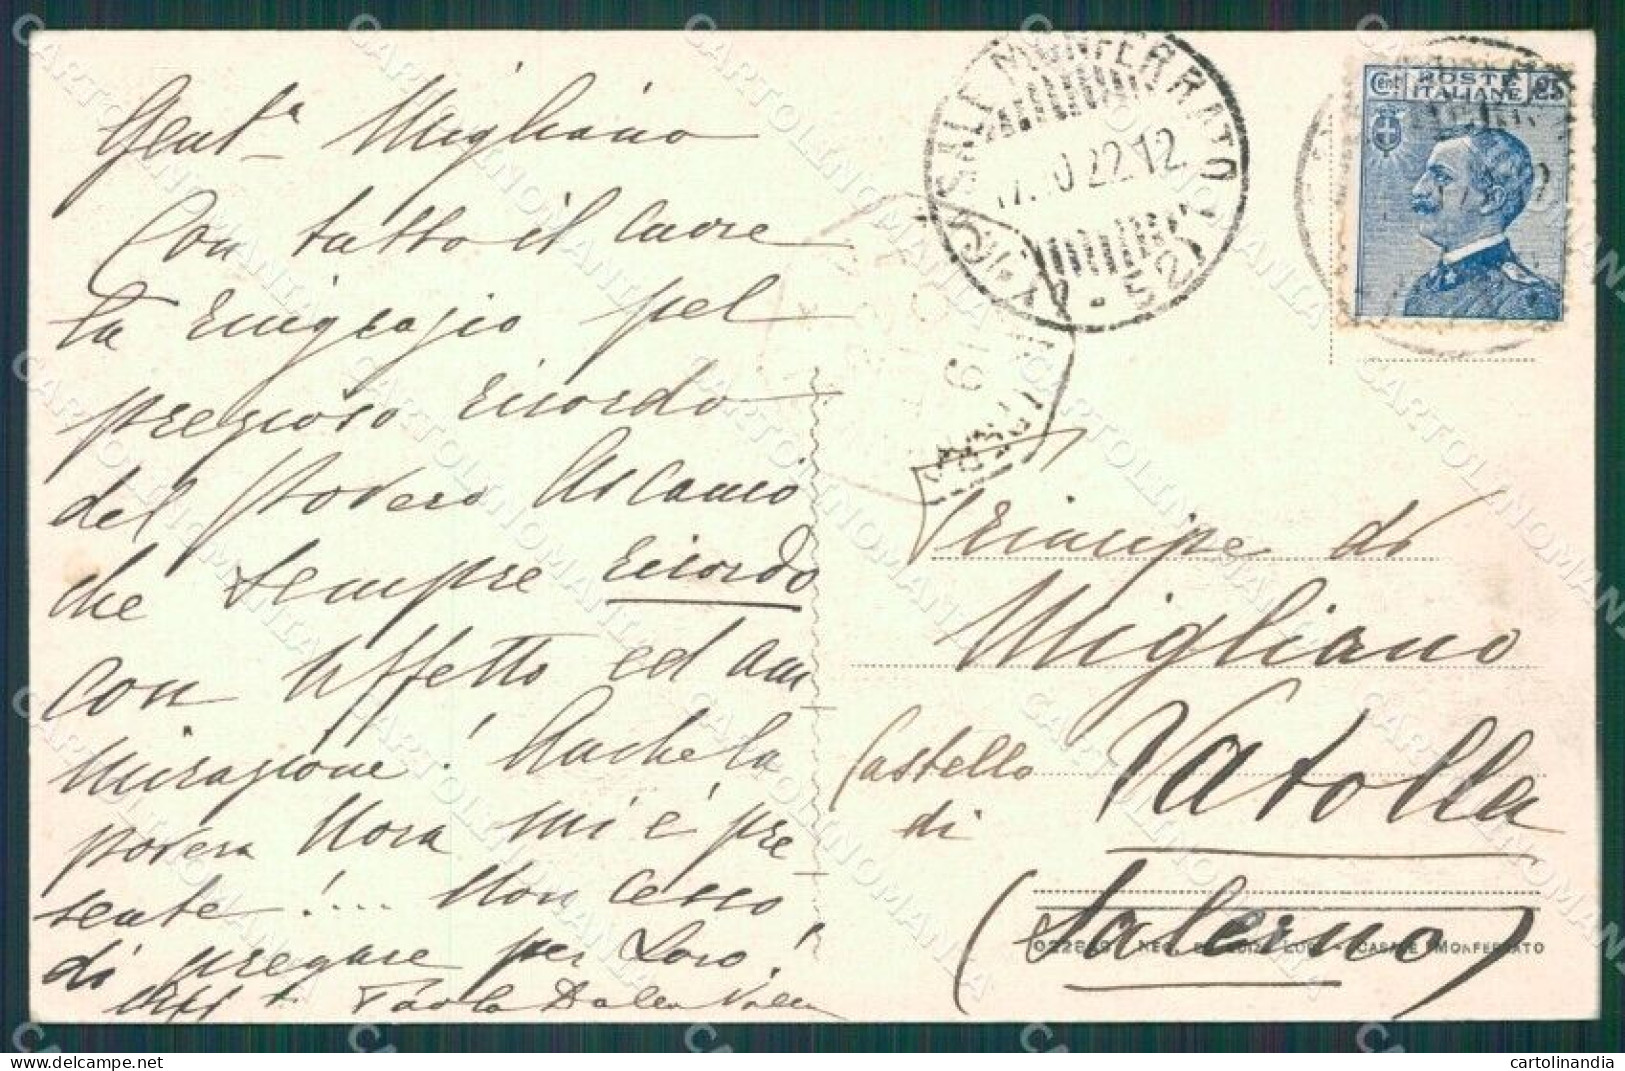 Gent.a Migliano
Con tutto il cuore
la ringrazio pel
prezioso ricordo
del povero Ascanio
che sempre ricordo
con affetto ed am-
mirazione! Anche la
povera Nora mi è pre-
sente!... Non cesso
di pregare per Loro!
Aff. Paola Dalla Valle
CASALE MONFERRATO
22.12
52
POSTE
ITALIANE
Cent. 25
19
Principe di
Migliano
Castello
di
Vatolla
(Salerno)
CASALE MONFERRATO
CARTOLINOMANIA
cartolinandia